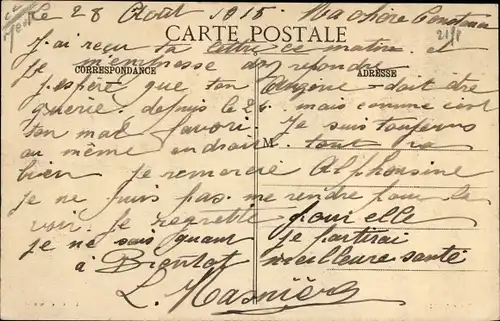 Le 28 Août 1915. Ma chère
CARTE POSTALE
21/8
J'ai reçu ta lettre ce matin et
je m'empresse d'y répondre
CORRESPONDANCE
ADRESSE
j'espère que ton Angine doit être
guérie depuis le mais comme c'est
ton mal favori. Je suis toujours
au même endroit tout va
M
bien je remercie Alphonsine
je ne puis pas me rendre pour la
voir. Je regrette pour elle
je ne sais quant je partirai
à Bientot meilleure santé
L. Masnière